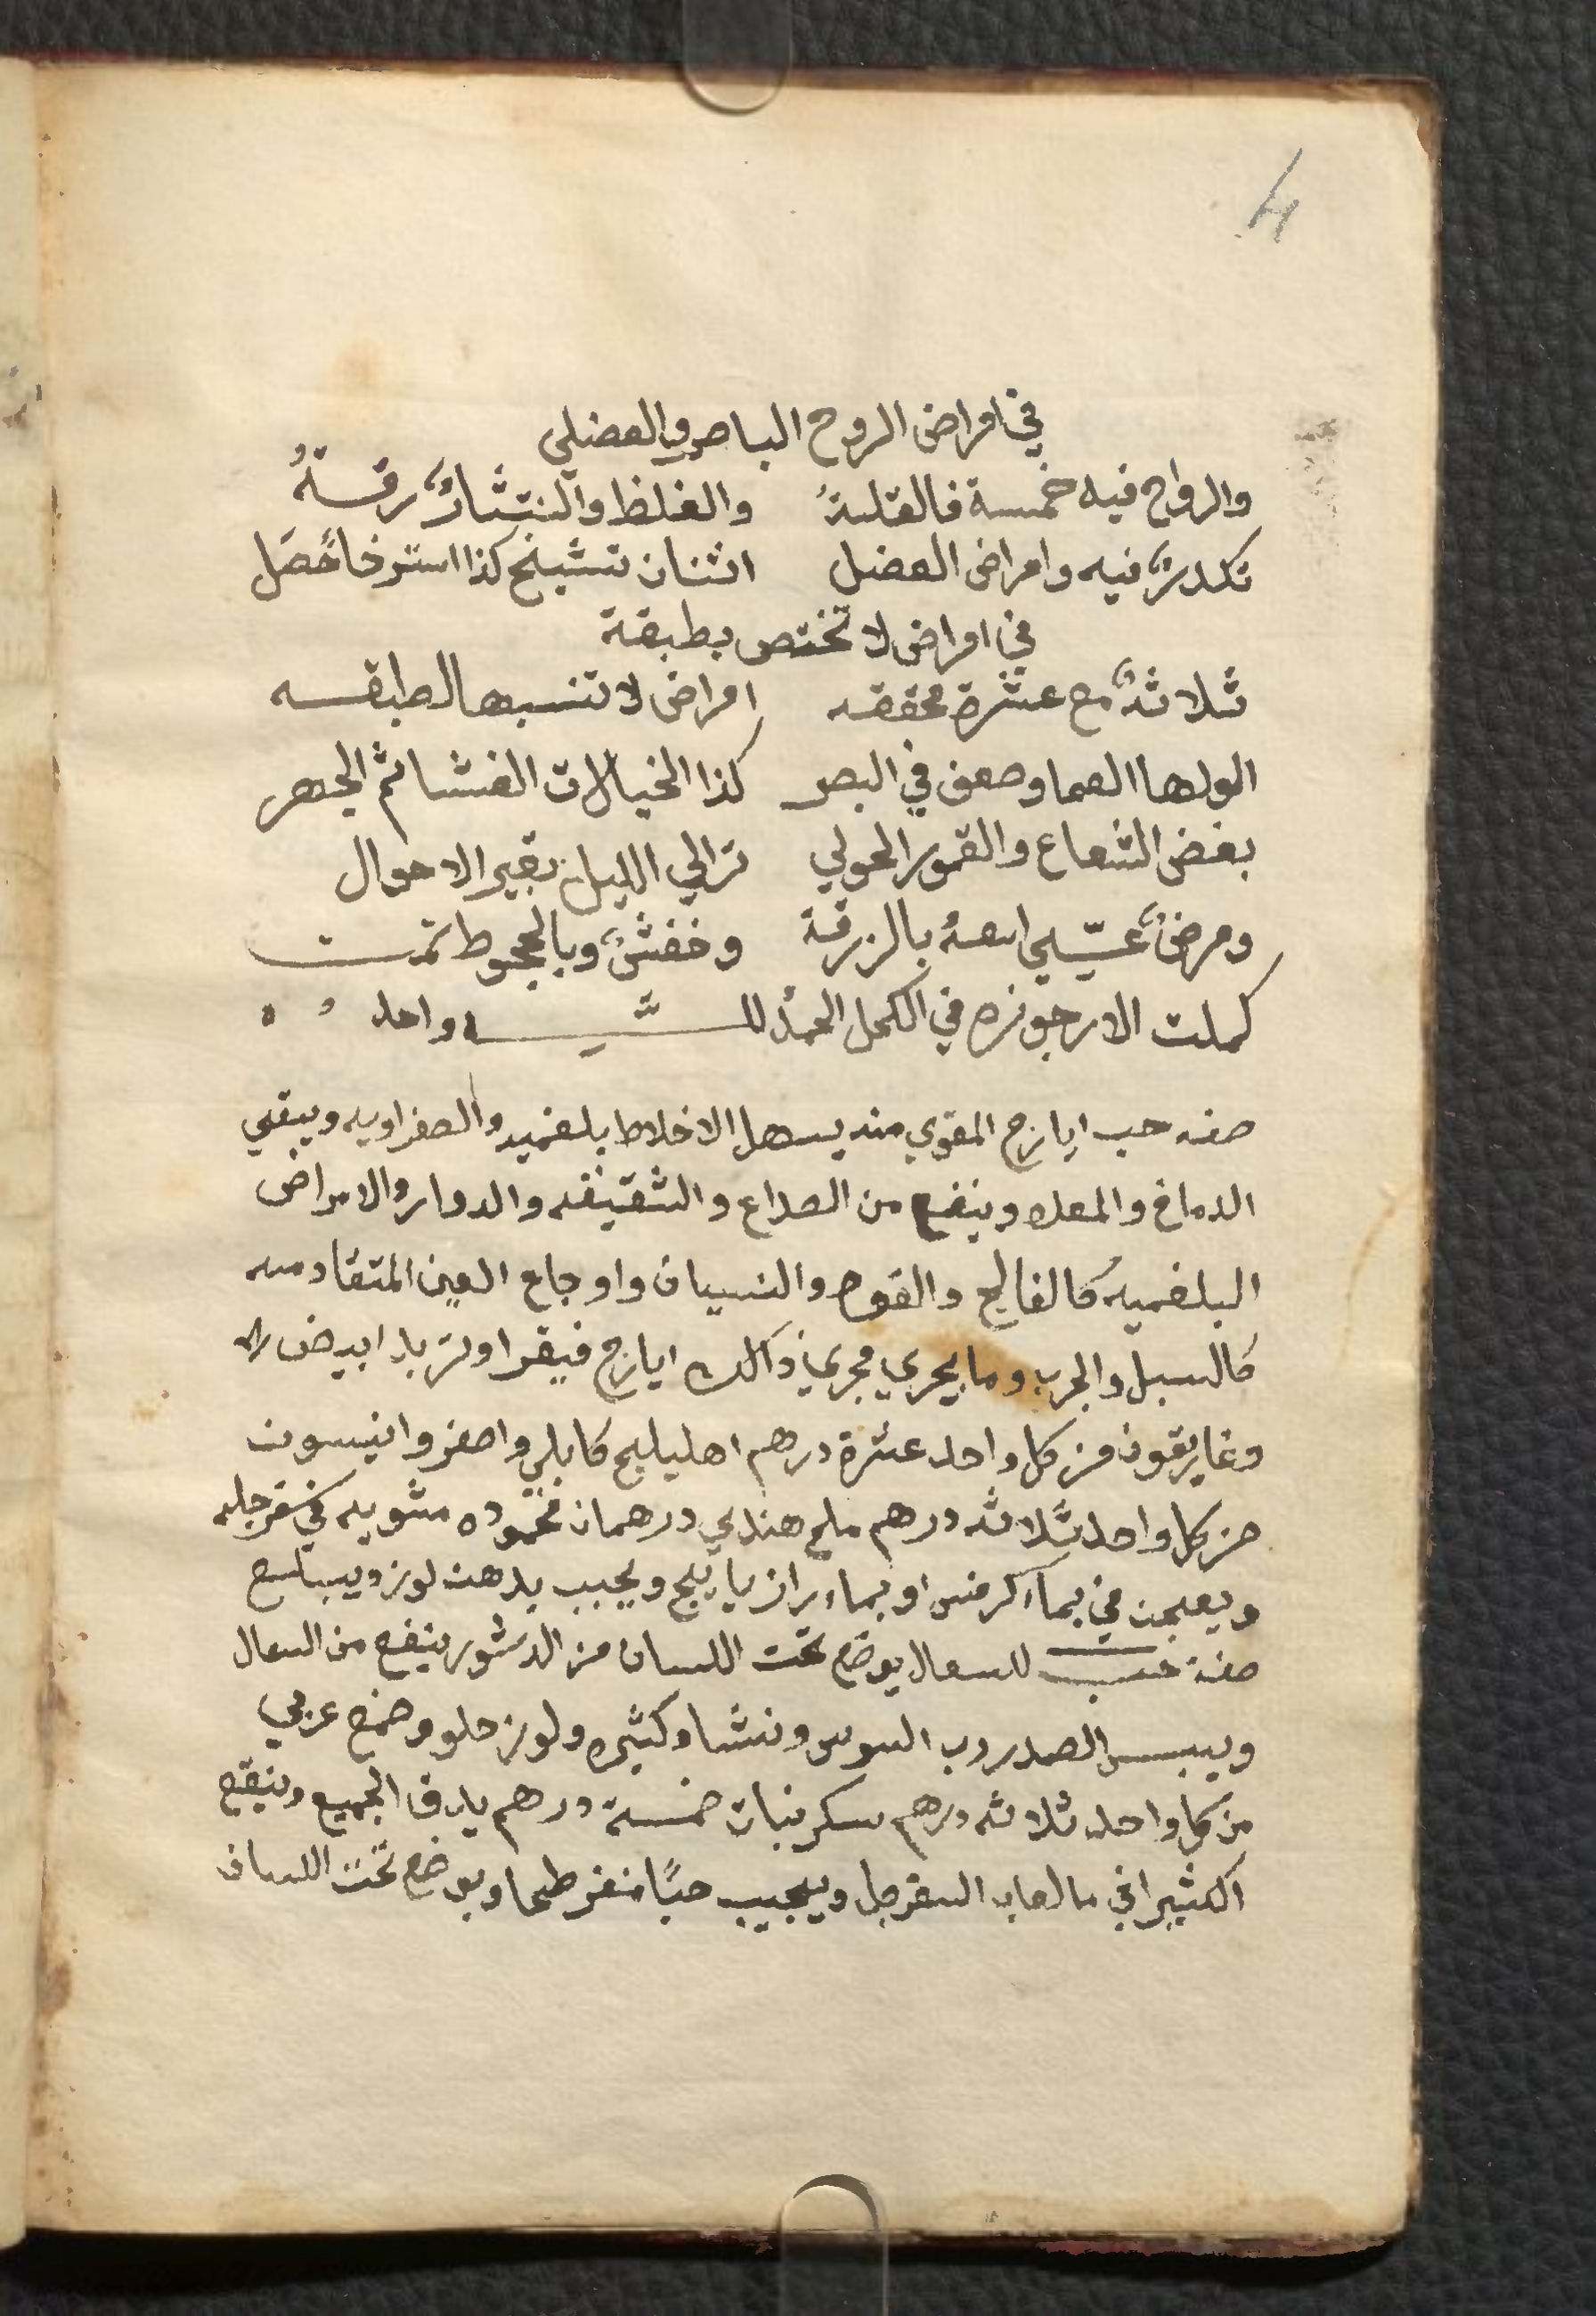 4
في امراض الروح الباصر والعضلي
والرواح فيه خمسة فالقلة والغلظ والنتثار رقة
تكدر فيه وامراض العضل اثنان تشبنج كذا استرخا حصل
في امراض لا تختص بطبقة
ثلاثة مع عشرة محققه امراض لا تنسبها لطبقه
اولها العما وضعف في البصر كذا الخيالات الغشا ثم الجهر
بغض الشعاع والقمور الحولي ترالي الليل بغير الاحوال
ومرض اسمه بالزرقة وخفش وبالجحوط تمت
كملت الارجوزه في الكحل الحمد لله واحد
صفه حب ايارج المقوي منه يسهل الاخلاط بلغميه والصفراويه ويبقي
الدماغ والمعده وينفع من الصداع والشقيقه والدوار والامراض
البلغميه كالفالج والقوه والنسيان واوجاع العين المتقادمه
كالسبل والجرب وما يجري مجري ذالك ايارج فيقرا وتربد ابيض
وغاريقون من كل واحد عشرة درهم اهليلج كابلي واصفر وانيسون
من كل واحد ثلاثه درهم ملح هندي درهمان محموده مشويه في سفرجله
ويعجن في بماء كرفس او بماء رازيانج ويحبب بدهن لوز
صفة حب للسعال يوضع تحت اللسان من الدستور ينفع من السعال
ويبس الصدر رب السوس ونشا وكثيره ولوز حلو وضمغ عربي
من كل واحد ثلاثه درهم سكر نبات خمسة درهم يدق الجميع وينقع
الكثيرا في ما لعاب السفرجل ويحبب حبًا مفرطحا ويوضع تحت اللسان